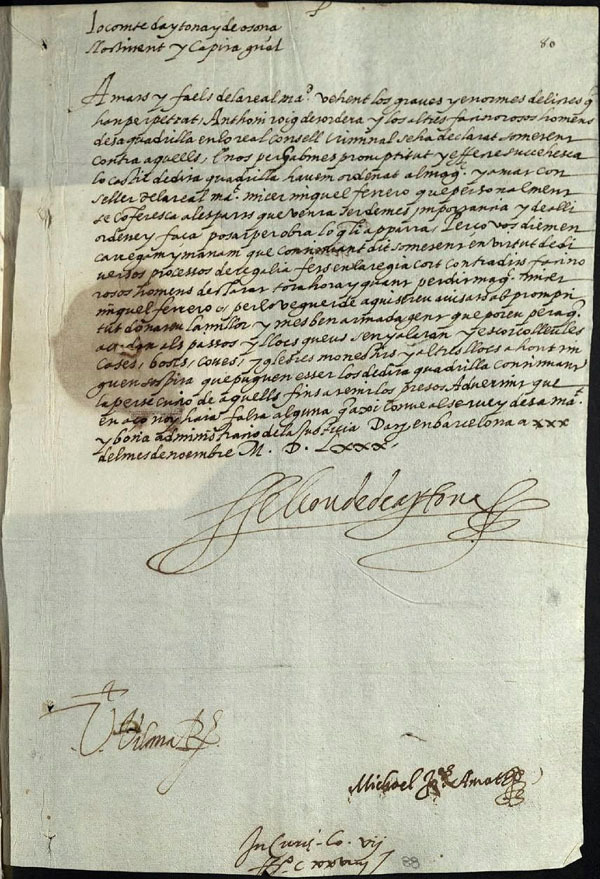 Lo comte de aytona y de osona
Llochtinent y Capita g͂nal
80
Amats y faels de la real ma.t vehent los graves y enormes delictes q̃
han perpetrat Anthoni roig de sordera y los altres facinorosos homens
de sa quadrilla en lo real Consell Criminal se ha declarat sometent
contra aquells, E nos per q̃ ab mes promptitut y effecte succehesca
lo castic de dita quadrilla havem ordenat al mag.ch y amat con
seller de la real ma.t micer miquel ferrero que personalment
se conferesca a les parts que venra ser de mes importancia y de alli
ordene y faça posar per obra lo q̃ li apparra. Perço vos diem en
carregam y manam que continuant dit sometent en virtut de di
versos processos de regalia fets en la regia cort contra dits facino
rosos homens declarat tota hora y quant per dit mag.ch micer
miquel ferrero o per lo veguer de aqui sereu avisats ab prompti
tut donareu la millor y mes ben armada gent que poreu per a q̃
acudan als passos y llocs que us senyalaran y escorcolleu les
cases, boscs, coves, yglesies monestirs y altres llocs ahont tin
guen sospita que puguen esser los de dita quadrilla continuant
la persecutio de aquells fins a tenir los presos Advertint que
en aço noy haia falta alguna q̃ axi conve al servey de sa ma.t
y bona administratio de la Justicia Dat en barcelona a xxx
del mes de noembre M. D. Lxxx.
El Conde de aytona
Vt Vilana R.s
Michael Jo.es Amat
In Curiẹ Lo. vij
fo. C xxviiij
88